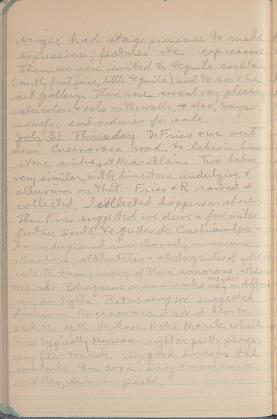 singer had stage presence to make
expression, features, etc. expressive.
Then we were invited to tequila cocktail
(mostly fruit juice, little tequila) and to see the
art gallery. There were several very pleasing
watercolors & oils on the walls, & also, trays,
scarfs, embroideries for sale.
July 31 Thursday Dr Fries & we went
down Cuernavaca road to lakes in lime
stone sinks, at Miacatlan. Two lakes,
very similar, with limestone underlying, &
alluvium on that. Fries & R rowed &
collected, I collected hoppers on shore.
Then Fries suggested we drive a few miles
further south to grutas de Cacahuamilpa -
An underground river channel, enormous
chambers, stalactites & stalagmites of
calcite, many of them sonorous when
tapped. Bluegreens on some rocks way in
very dim lights. Returning we suggested
dinner in Cuernavaca & asked him to
pick the spot. He chose Hotel Marik which
was typically Mexican - right on pretty plaza,
very few tourists, very good dinners. Had